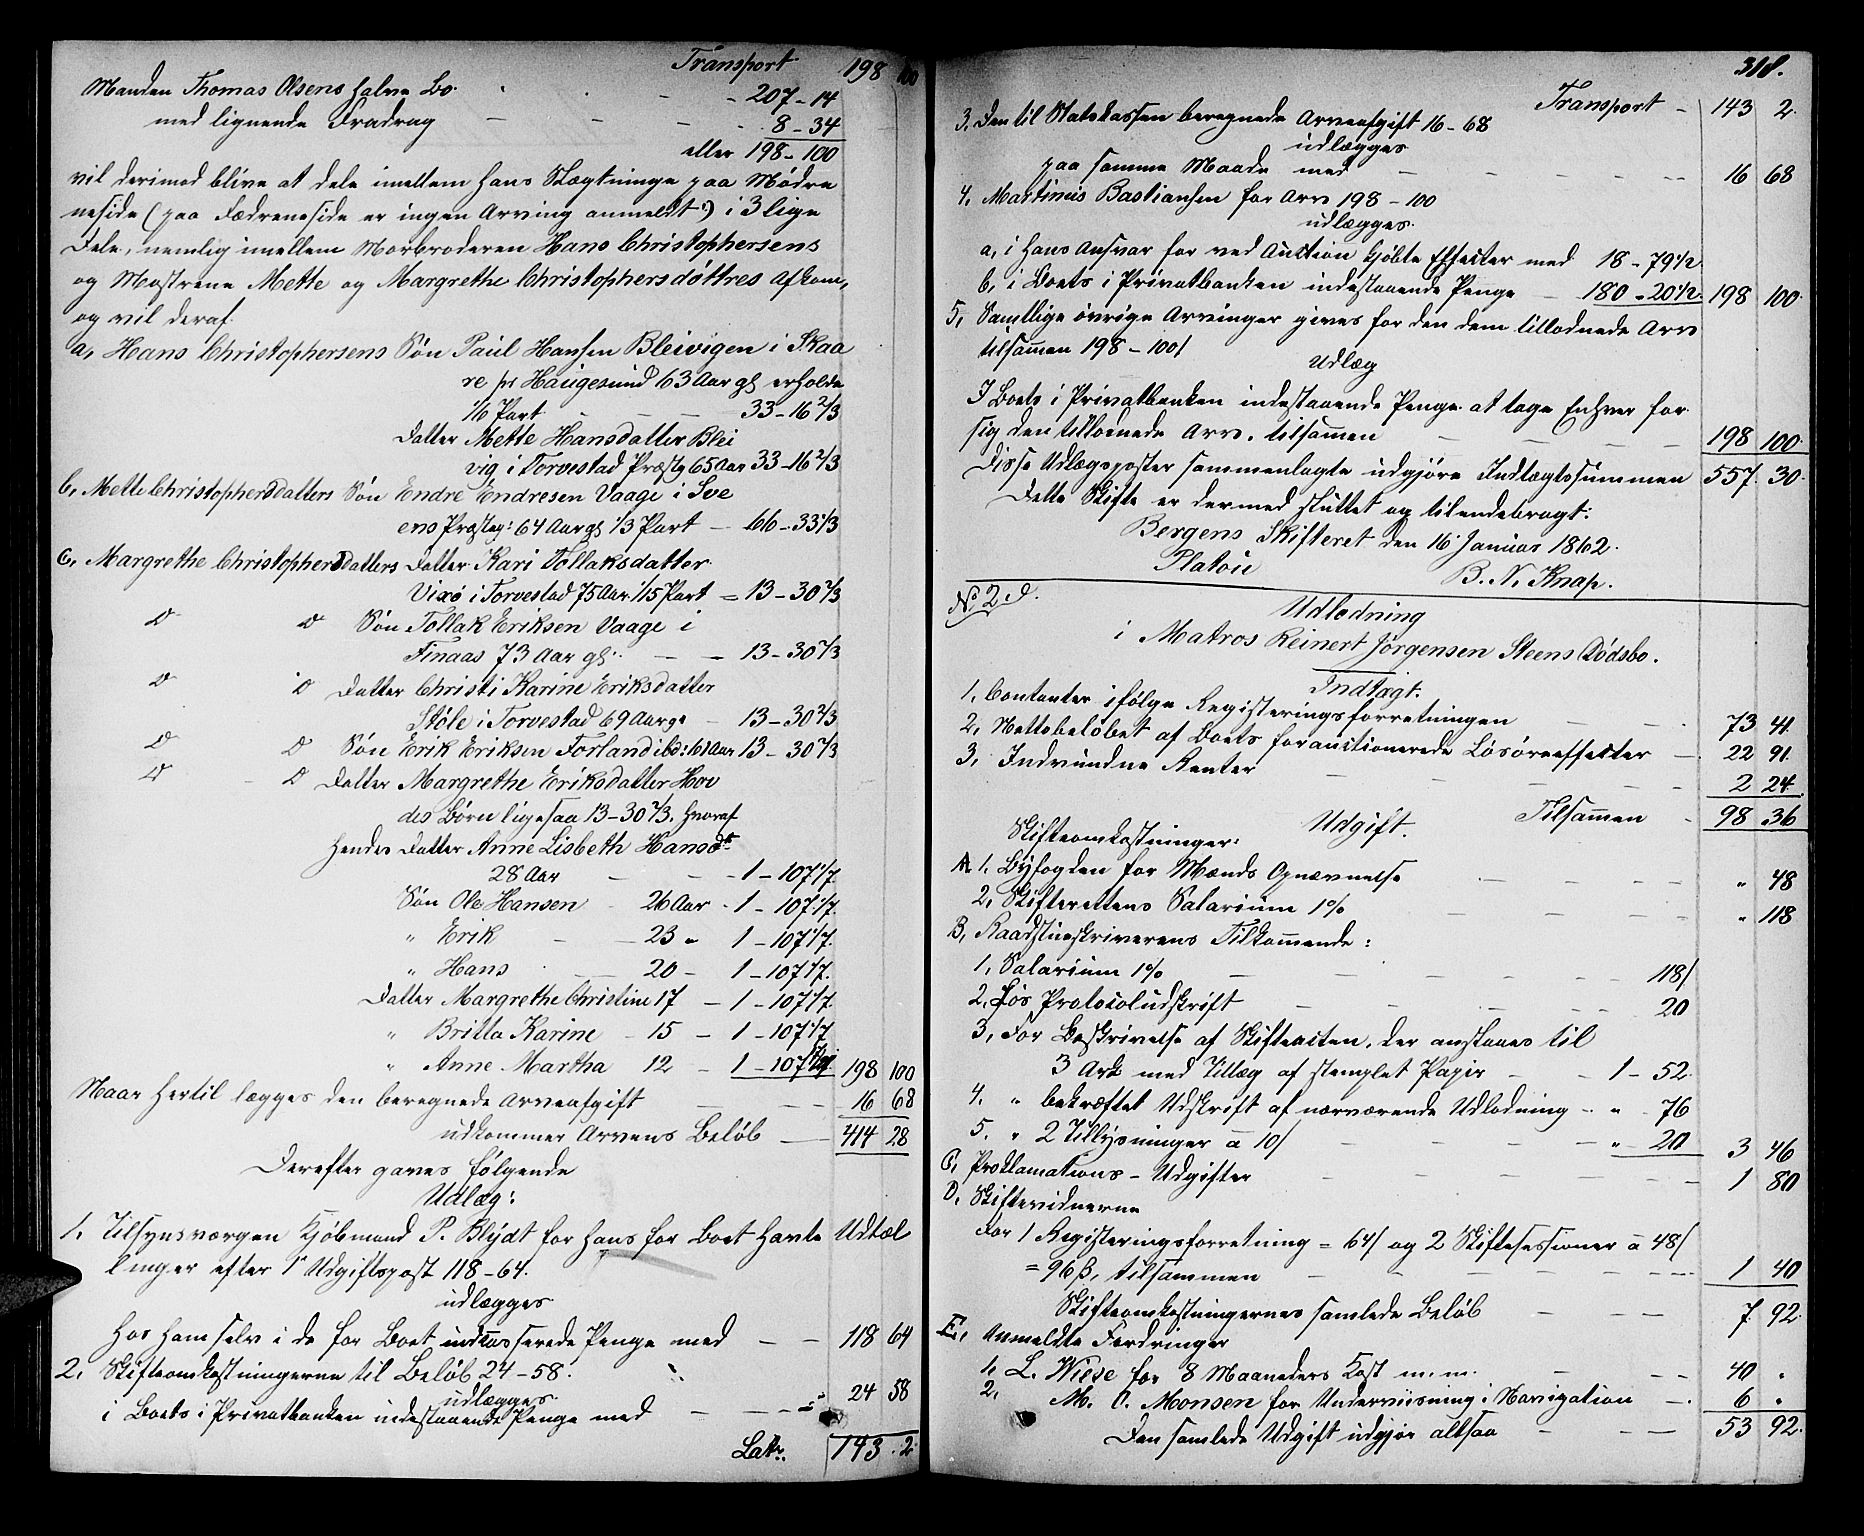 Transport 198 100
Manden Thomas Olsens halve Bo - - - 207-14
med lignende Fradrag - - - 8-34
eller 198-100
vil derimod blive at dele imellem hans Slægtninge paa Mødre
neside (paa Fædreneside er ingen Arving anmeldt) i 3 lige
Dele, nemlig imellem Morbroderen Hans Christophersens
og Mostrene Mette og Margrethe Christophersdøttres Afkom,
og vil deraf
a, Hans Christophersens Søn Paul Hansen Bleivigen i Skaa
re pr Haugesund 63 Aar gl erholde
1/6 Part - - - 33-16 2/3
Datter Mette Hansdatter Blei
vig i Torvestad Præstg 65 Aar 33-16 2/3
b, Mette Christophersdatters Søn Endre Endresen Vaage i Sve
ens Præsteg: 64 Aar gl 1/3 Part - 66-33 1/3
c, Margrethe Christophersdatters Datter Kari Tollaksdatter
Vixø i Torvestad 75 Aar 1/15 Part = 13-30 2/3
D D Søn Tollak Eriksen Vaage i
Finaas 73 Aar gl. - - 13-30 2/3
D D Datter Christi Karine Eriksdatter
Støle i Torvestad 69 Aar gl - 13-30 2/3
D D Søn Erik Eriksen Forland ibd: 61 Aar 13-30 2/3
D - D Datter Margrethe Eriksdatter Hov
des Børn ligesaa 13-30 2/3, hvoraf
hendes Datter Anne Lisbeth Hansdr
28 Aar - - - 1-107 1/7
Søn Ole Hansen - 26 Aar - 1-107 1/7
" Erik - - 23 " 1-107 1/7
" Hans - - 20 - 1-107 1/7
Datter Margrethe Christine 17 - 1-107 1/7
" Britta Karine - 15 - 1-107 1/7
" Anne Martha 12 - 1-107 1/7 198 100
Naar hertil lægges den beregnede Arveafgift - - - 16 68
udkommer Arvens Beløb - 414 28
Derefter gaves følgende
Udlæg:
1, Tilsynsværgen Kjøbmand P. Blÿdt for hans for Boet havte Udtæl
linger efter 1e Udgiftspost 118-64.
udlægges
hos ham selv i de for Boet indkasserede Penge med - - 118 64
2, Skifteomkostningerne til Beløb 24-58.
udlægges
i Boets i Privatbanken indestaaende Penge med - - - 24 58
Latr. 143. 2.
318.
Transport - 143 2.
3, Den til Statskassen beregnede Arveafgift 16-68
udlægges
paa samme Maade med - - - - 16 68
4, Martinus Bastiansen for Arv 198-100
udlægges
a, i hans Ansvar for ved Auction kjøbte Effecter med 18-79 1/2
b, i Boets i Privatbanken indestaaende Penge - 180-20 1/2 198 100
5, Samtlige øvrige Arvinger gives for den dem tillodnede Arv
tilsammen 198-100/
Udlæg
I Boets i Privatbanken indestaaende Penge at tage Enhver for
sig den tillodnede Arv, tilsammen - - - - 198 100.
Disse Udlægsposter sammenlagte udgjøre Indtægtssummen 557. 30.
Dette Skifte er dermed sluttet og tilendebragt:
Bergens Skifteret den 16 Januar 1862.
Platou B. N. Knap.
No 2 d.
Udlodning
i Matros Reinert Jørgensen Steens Dødsbo.
Indtægt.
1, Contanter ifølge Registeringsforretningen - - 73 41.
2, Nettobeløbet af Boets forauctionerede Løsøreeffecter - 22 91.
3, Indvundne Renter - - - - 2 24.
Tilsammen - 98 36
Udgift.
Skifteomkostninger:
A 1, Byfogden for Mænds Opnævnelse - - - " 48
2, Skifterettens Salarium 1% - - - " 118
B, Raadstueskriverens Tilkommende:
1, Salarium 1% - - - - 118/
2, for Protocoludskrift - - - 20
3, For Beskrivelse af Skifteacten, der ansaaes til
3 Ark med Tillæg af stemplet Papir - - 1-52.
4, " bekræftet Udskrift af nærværende Udlodning - " - 76
5, " 2 Tillysninger a 10/ - - - " - 20 3 46
C, Proklamations-Udgifter - - - - 1 80
D, Skiftevidnerne
For 1 Registeringsforretning = 64/ og 2 Skiftesessioner a 48/
= 96 ß, tilsammen - - - - 1 40
Skifteomkostningernes samlede Beløb - - 7. 92.
E, Anmeldte Fordringer
1, L. Wiese for 8 Maaneders Kost m. m. - - 40 "
2, M. C. Monsen for Underviisning i Navigation - 6 "
Den samlede Udgift udgjør altsaa - - - 53 92.